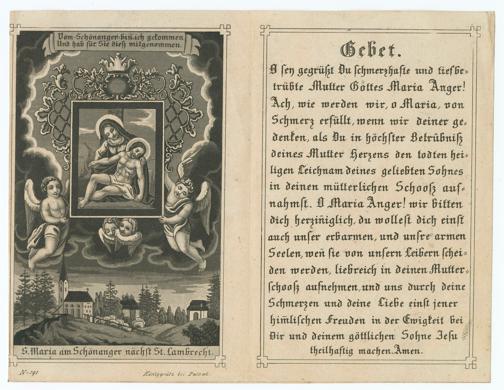 Vom Schönanger bin ich gekommen
Und hab für Sie dieß mitgenommen.
S. Maria am Schönanger nächst St. Lambrecht.
Gebet.
O sey gegrüßt Du schmerzhafte und tiefbe-
trübte Mutter Gottes Maria Anger!
Ach, wie werden wir, o Maria, von
Schmerz erfüllt, wenn wir deiner ge-
denken, als Du in höchster Betrübniß
deines Mutter Herzens den todten hei-
ligen Leichnam deines geliebten Sohnes
in deinen mütterlichen Schooß auf-
nahmst. O Maria Anger! wir bitten
dich herziñiglich, du wollest dich einst
auch unser erbarmen, und unsre armen
Seelen, weñ sie von unsern Leibern schei-
den werden, liebreich in deinen Mutter-
schooß aufnehmen, und uns durch deine
Schmerzen und deine Liebe einst jener
him̄lischen Freuden in der Ewigkeit bei
Dir und deinem göttlichen Sohne Jesu
theilhaftig machen. Amen.